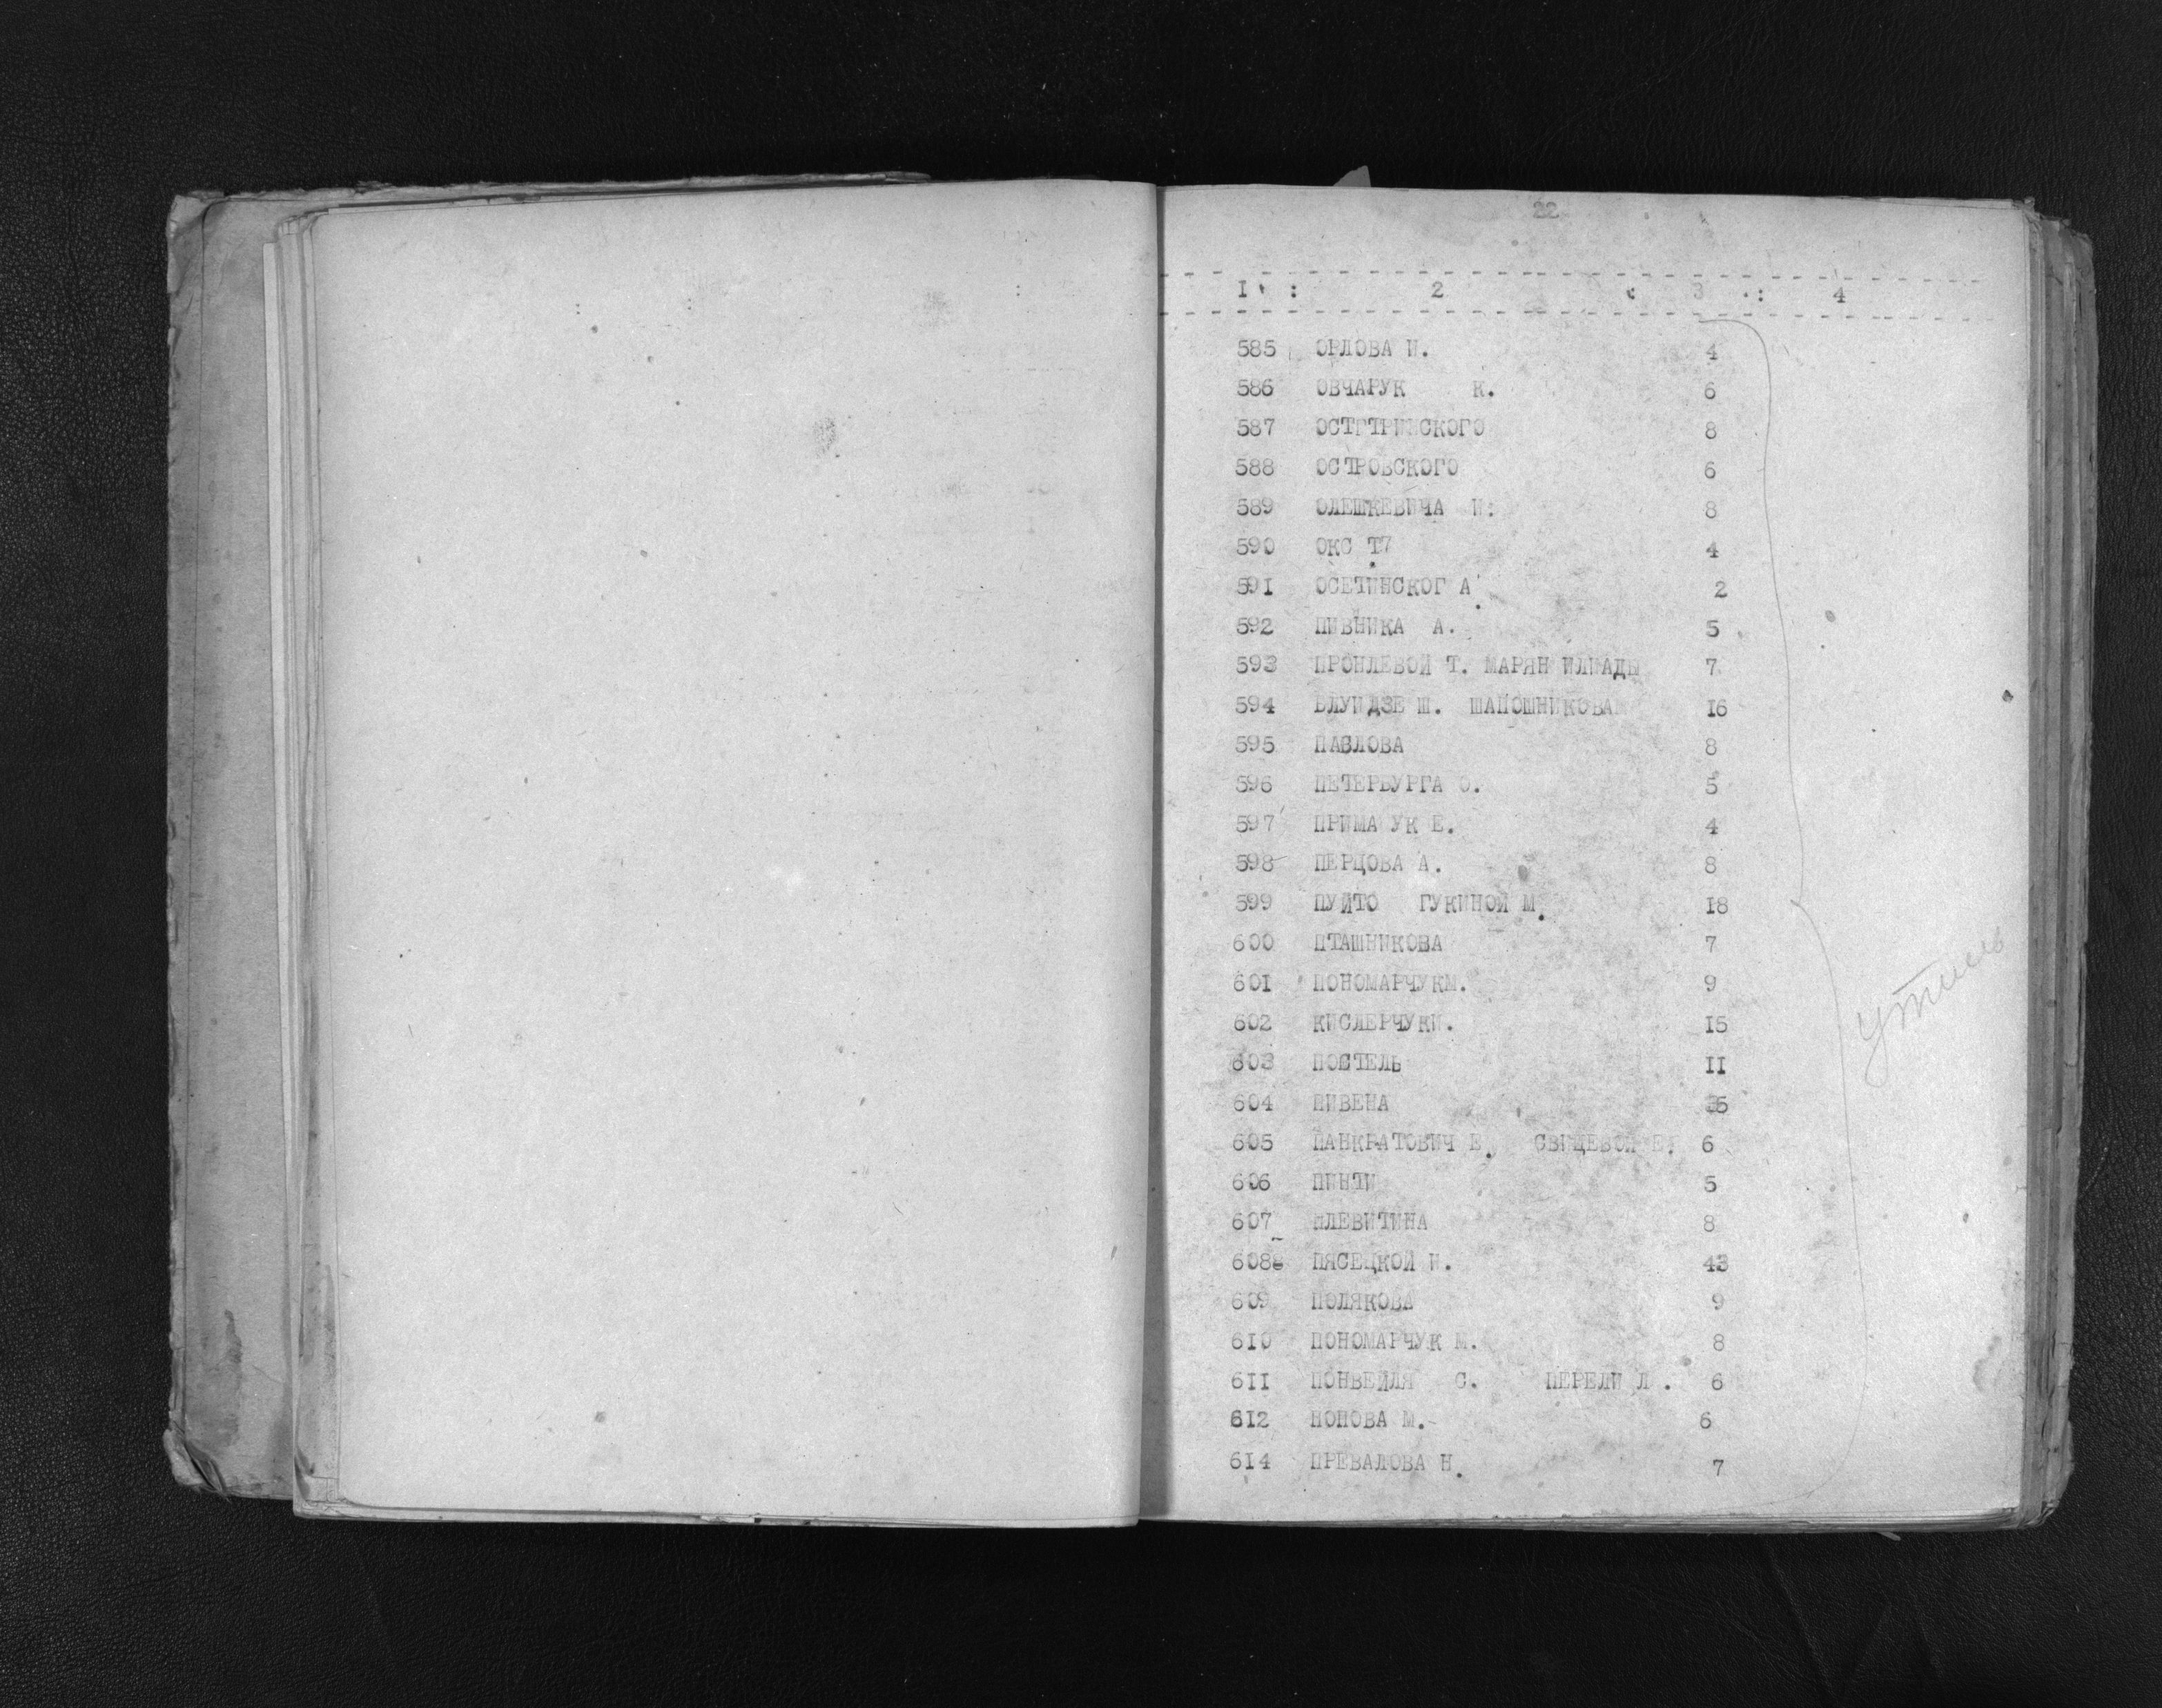 22
I : 2 : 3 : 4
585 ОРЛОВА И. 4
586 ОВЧАРУК К. 6
587 8
588 ОСТРОВСКОГО 6
589 ОЛЕШКЕВИЧА И. 8
590 ОКС Т7 4
591 ОСЕТИНСКОГ А 2
592 ПИВНИКА А. 5
593 Т. МАРЯН 7
594 Ш. ШАПОШНИКОВА I6
595 ПАВЛОВА 8
596 ПЕТЕРБУРГА О. 5
597 ПРИМА УК Е. 4
598 ПЕРЦОВА А. 8
599 ПУЙТО ГУКИНОЙ М. I8
600 ПТАШНИКОВА 7
60I ПОНОМАРЧУКМ. 9
602 КИСЛЕРЧУКИ. I5
603 ПОСТЕЛЬ II
604 ПИВЕНА
605 ПАНКРАТОВИЧ Е. СВИЩЕВОЙ 6
606 ПИНТИ 5
607 ПЛЕВИТИНА 8
6088 ПЯСЕЦКОЙ И. 43
609 ПОЛЯКОВА 9
6I0 ПОНОМАРЧУК М. 8
6II ПОНВЕЙЛЯ С. ПЕРЕЛИ Л. 6
6I2 ПОПОВА М. 6
6I4 ПРЕВАЛОВА Н. 7
утиль